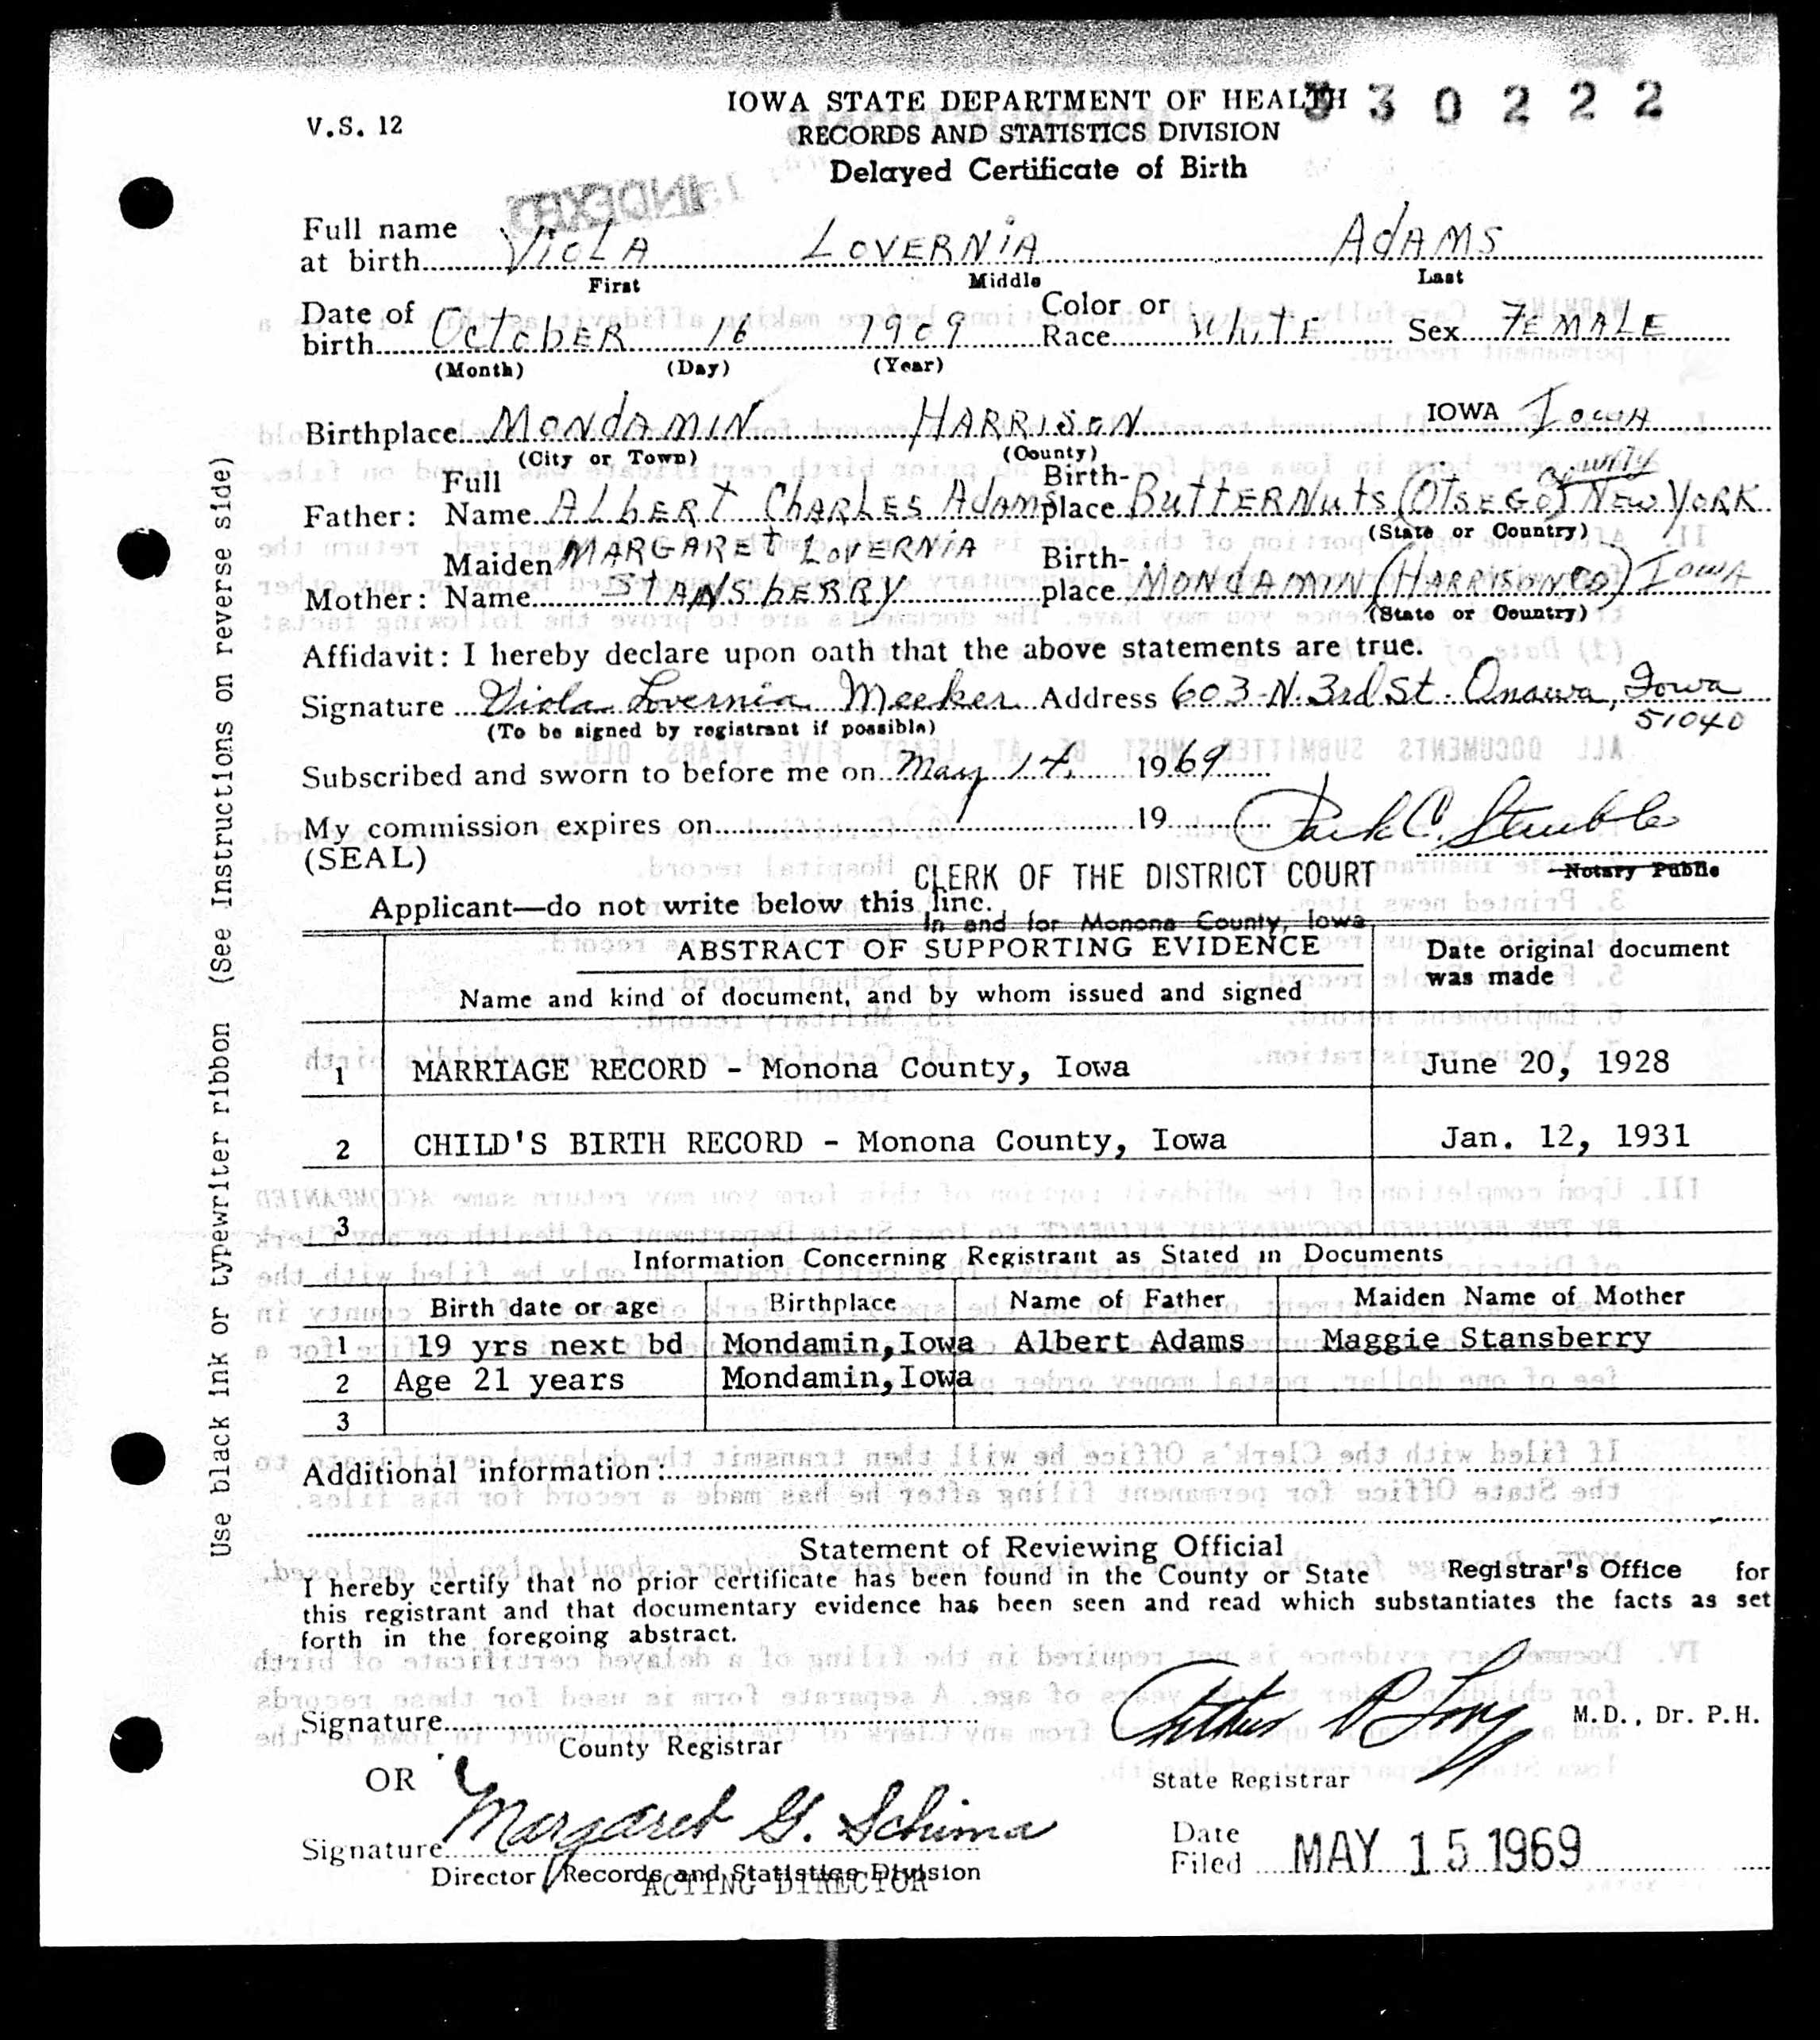 V.S. 12
IOWA STATE DEPARTMENT OF HEALTH
330222
RECORDS AND STATISTICS DIVISION
Delayed Certificate of Birth
INDEXED
Full name at birth Viola Lovernia Adams
First Middle Last
Date of birth October 16 1909 Color or Race White Sex Female
(Month) (Day) (Year)
Birthplace Mondamin Harrison IOWA Iowa
(City or Town) (County)
county
Father: Full Name Albert Charles Adams Birthplace Butternuts (Otsego) New York
(State or Country)
Mother: Maiden Name Margaret Lovernia Stansberry Birthplace Mondamin (Harrison Co) Iowa
(State or Country)
Affidavit: I hereby declare upon oath that the above statements are true.
Signature Viola Lovernia Meeker Address 603-N. 3rd St. Onawa, Iowa
(To be signed by registrant if possible) 51040
Subscribed and sworn to before me on May 14, 1969
My commission expires on 19
(SEAL)
Notary Public
CLERK OF THE DISTRICT COURT
Applicant—do not write below this line.
In and for Monona County, Iowa
ABSTRACT OF SUPPORTING EVIDENCE
Name and kind of document, and by whom issued and signed
Date original document was made
1 MARRIAGE RECORD - Monona County, Iowa June 20, 1928
2 CHILD'S BIRTH RECORD - Monona County, Iowa Jan. 12, 1931
3
Information Concerning Registrant as Stated in Documents
Birth date or age Birthplace Name of Father Maiden Name of Mother
1 19 yrs next bd Mondamin,Iowa Albert Adams Maggie Stansberry
2 Age 21 years Mondamin,Iowa
3
Additional information:
Statement of Reviewing Official
I hereby certify that no prior certificate has been found in the County or State Registrar's Office for
this registrant and that documentary evidence has been seen and read which substantiates the facts as set
forth in the foregoing abstract.
Signature
County Registrar
M.D., Dr. P.H.
State Registrar
OR
Signature Margaret G. Schima
Director Records and Statistics Division
ACTING DIRECTOR
Date Filed MAY 15 1969
Use black ink or typewriter ribbon (See Instructions on reverse side)